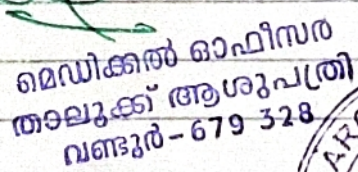 മെഡിക്കൽ ഓഫീസർ
താലൂക്ക് ആശുപത്രി
വണ്ടൂർ-679 328